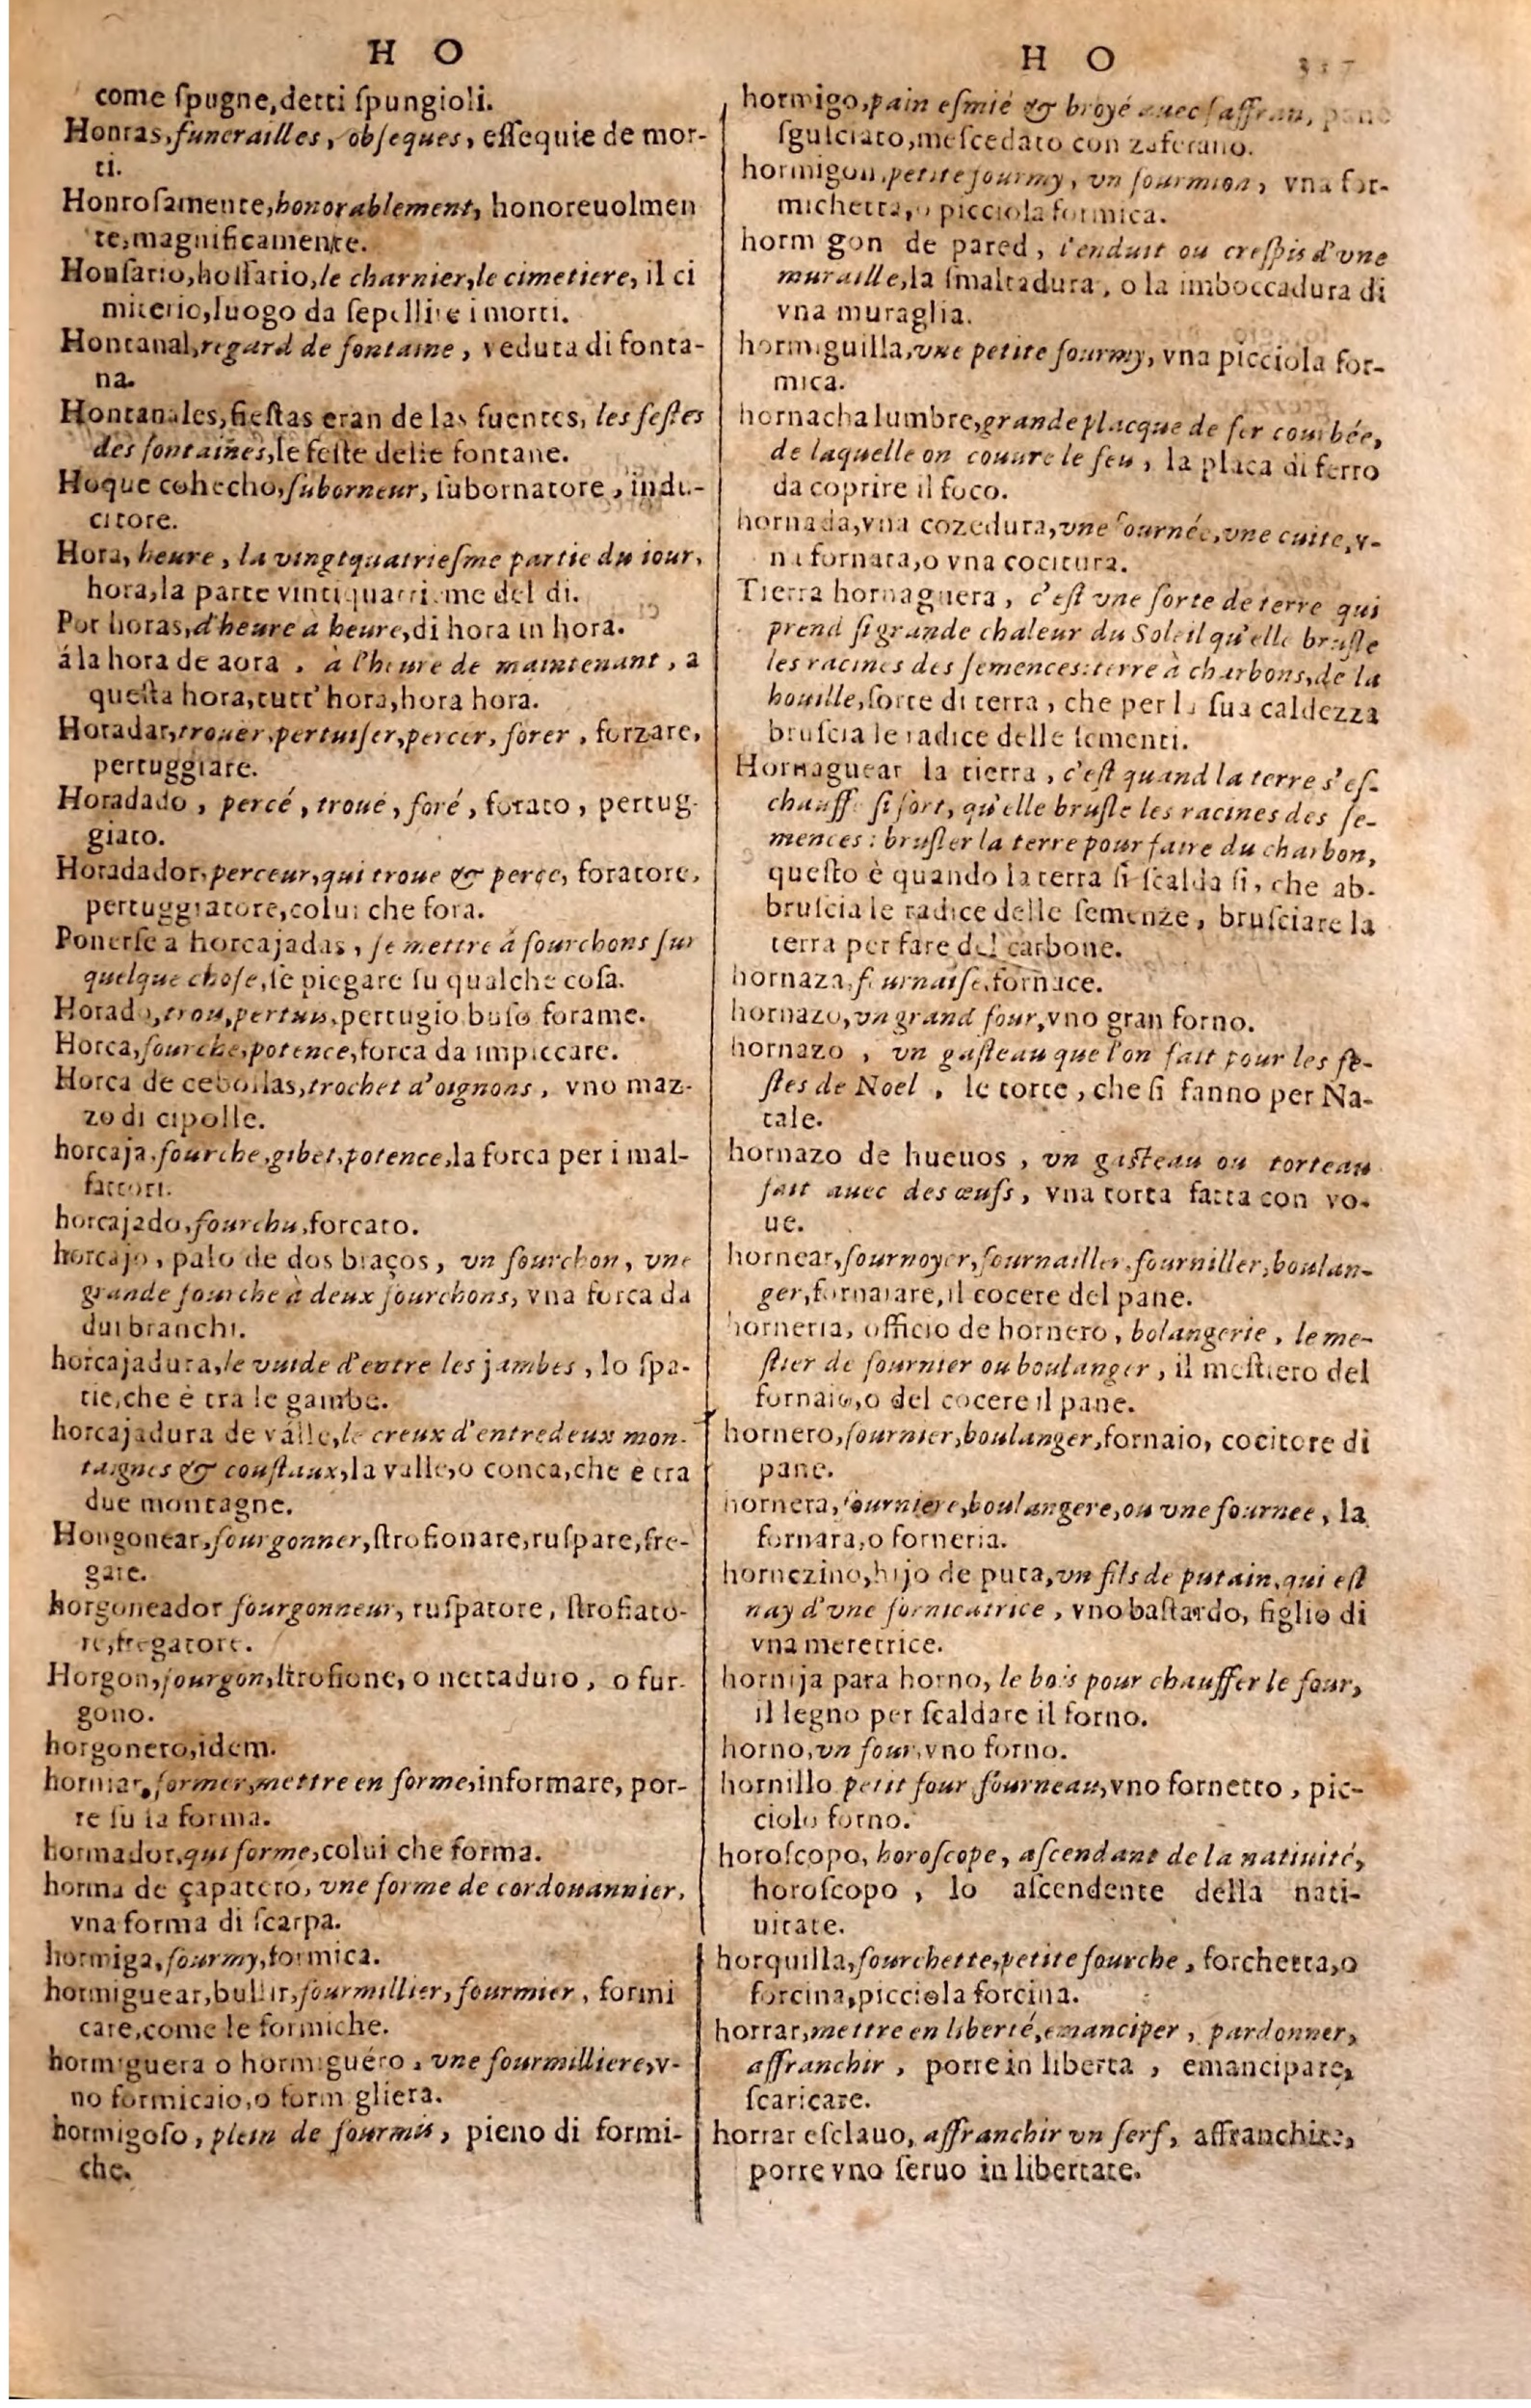 H O
come ſpugne,detti ſpungioli.
Honras,funerailles, obſeques, eſſequie de mor-
ti.
Honroſamente,honorablement, honoreuolmen
te,magnificamente.
Honſario,hoſſario,le charnier,le cimetiere, il ci
miterio,luogo da ſepellire i morti.
Hontanal,regard de fontaine, veduta di fonta-
na.
Hontanales,fieſtas eran de las fuentes, les feſtes
des fontaines,le feſte delle fontane.
Hoque cohecho,ſuborneur, ſubornatore, indu-
citore.
Hora, heure, la vingtquatrieſme partie du iour,
hora,la parte vintiquattrieme del di.
Por horas,d'heure à heure,di hora in hora.
á la hora de aora, à l'heure de maintenant, a
queſta hora,tutt'hora,hora hora.
Horadar,trouer,pertuiſer,percer, forer, forzare,
pertuggiare.
Horadado, percé, troué, foré, forato, pertug-
giato.
Horadador,perceur,qui troue & perce, foratore,
pertuggiatore,colui che fora.
Ponerſe a horcajadas, ſe mettre à fourchons ſur
quelque choſe,ſe piegare ſu qualche coſa.
Horado,trou,pertuis,pertugio buſo forame.
Horca,fourche,potence,forca da impiccare.
Horca de cebollas,trochet d'oignons, vno maz-
zo di cipolle.
horcaja,fourche,gibet,potence,la forca per i mal-
fattori.
horcajado,fourchu,forcato.
horcajo, palo de dos braços, vn fourchon, vne
grande fourche à deux fourchons, vna forca da
dui branchi.
horcajadura,le vuide d'entre les jambes, lo ſpa-
tie,che è tra le gambe.
horcajadura de valle,le creux d'entredeux mon-
taignes & couſtaux,la valle,o conca,che è tra
due montagne.
Hongonear,fourgonner,ſtrofionare,ruſpare,fre-
gare.
horgoneador fourgonneur, ruſpatore, ſtrofiato-
re,fregatore.
Horgon,fourgon,ſtrofione, o nettaduro, o fur-
gono.
horgonero,idem.
hormar,former,mettre en forme,informare, por-
re ſu la forma.
hormador,qui forme,colui che forma.
horma de çapatero, vne forme de cordouannier,
vna forma di ſcarpa.
hormiga,fourmy,formica.
hormiguear,bullir,fourmillier,fourmier, formi
care,come le formiche.
hormiguera o hormiguéro, vne fourmilliere,v-
no formicaio,o formigliera.
hormigoſo, plein de fourmis, pieno di formi-
che.
H O 317
hormigo,pain eſmié & broyé auec ſaffran, pane
ſgulciato,meſcedato con zaferano.
hormigon,petite fourmy, vn fourmion, vna for-
michetta,o picciola formica.
hormigon de pared, l'enduit ou creſpis d'vne
muraille,la ſmaltadura, o la imboccadura di
vna muraglia.
hormiguilla,vne petite fourmy, vna picciola for-
mica.
hornachalumbre,grande placque de fer courbée,
de laquelle on couure le feu, la placa di ferro
da coprire il foco.
hornada,vna cozedura,vne fournée,vne cuite,v-
na fornata,o vna cocitura.
Tierra hornaguera, c'eſt vne ſorte de terre qui
prend ſi grande chaleur du Soleil qu'elle bruſle
les racines des ſemences:terre à charbons,de la
houille,ſorte di terra, che per la ſua caldezza
bruſcia le radice delle ſementi.
Hornaguear la tierra, c'eſt quand la terre s'eſ-
chauffe ſi fort, qu'elle bruſle les racines des ſe-
mences: bruſler la terre pour faire du charbon,
queſto è quando la terra ſi ſcalda ſi, che ab-
bruſcia le radice delle ſemenze, bruſciare la
terra per fare del carbone.
hornaza,fournaiſe,fornace.
hornazo,vn grand four,vno gran forno.
hornazo, vn gaſteau que l'on fait pour les fe-
ſtes de Noel, le torte, che ſi fanno per Na-
tale.
hornazo de hueuos, vn gaſteau ou torteau
fait auec des œufs, vna torta fatta con vo-
ue.
hornear,fournoyer,fournailler,fourniller,boulan-
ger,fornaiare,il cocere del pane.
horneria, officio de hornero, bolangerie, le me-
ſtier de fournier ou boulanger, il meſtiero del
fornaio,o del cocere il pane.
hornero,fournier,boulanger,fornaio, cocitore di
pane.
hornera,fourniere,boulangere,ou vne fournee, la
fornara,o forneria.
hornezino,hijo de puta,vn fils de putain,qui eſt
nay d'vne fornicatrice, vno baſtardo, figlio di
vna meretrice.
hornija para horno, le bois pour chauffer le four,
il legno per ſcaldare il forno.
horno,vn four,vno forno.
hornillo petit four fourneau,vno fornetto, pic-
ciolo forno.
horoſcopo, horoſcope, aſcendant de la natiuité,
horoſcopo, lo aſcendente della nati-
uitate.
horquilla,fourchette,petite fourche, forchetta,o
forcina,picciola forcina.
horrar,mettre en liberté,emanciper, pardonner,
affranchir, porre in liberta, emancipare,
ſcaricare.
horrar eſclauo, affranchir vn ſerf, affranchire,
porre vno ſeruo in libertate.